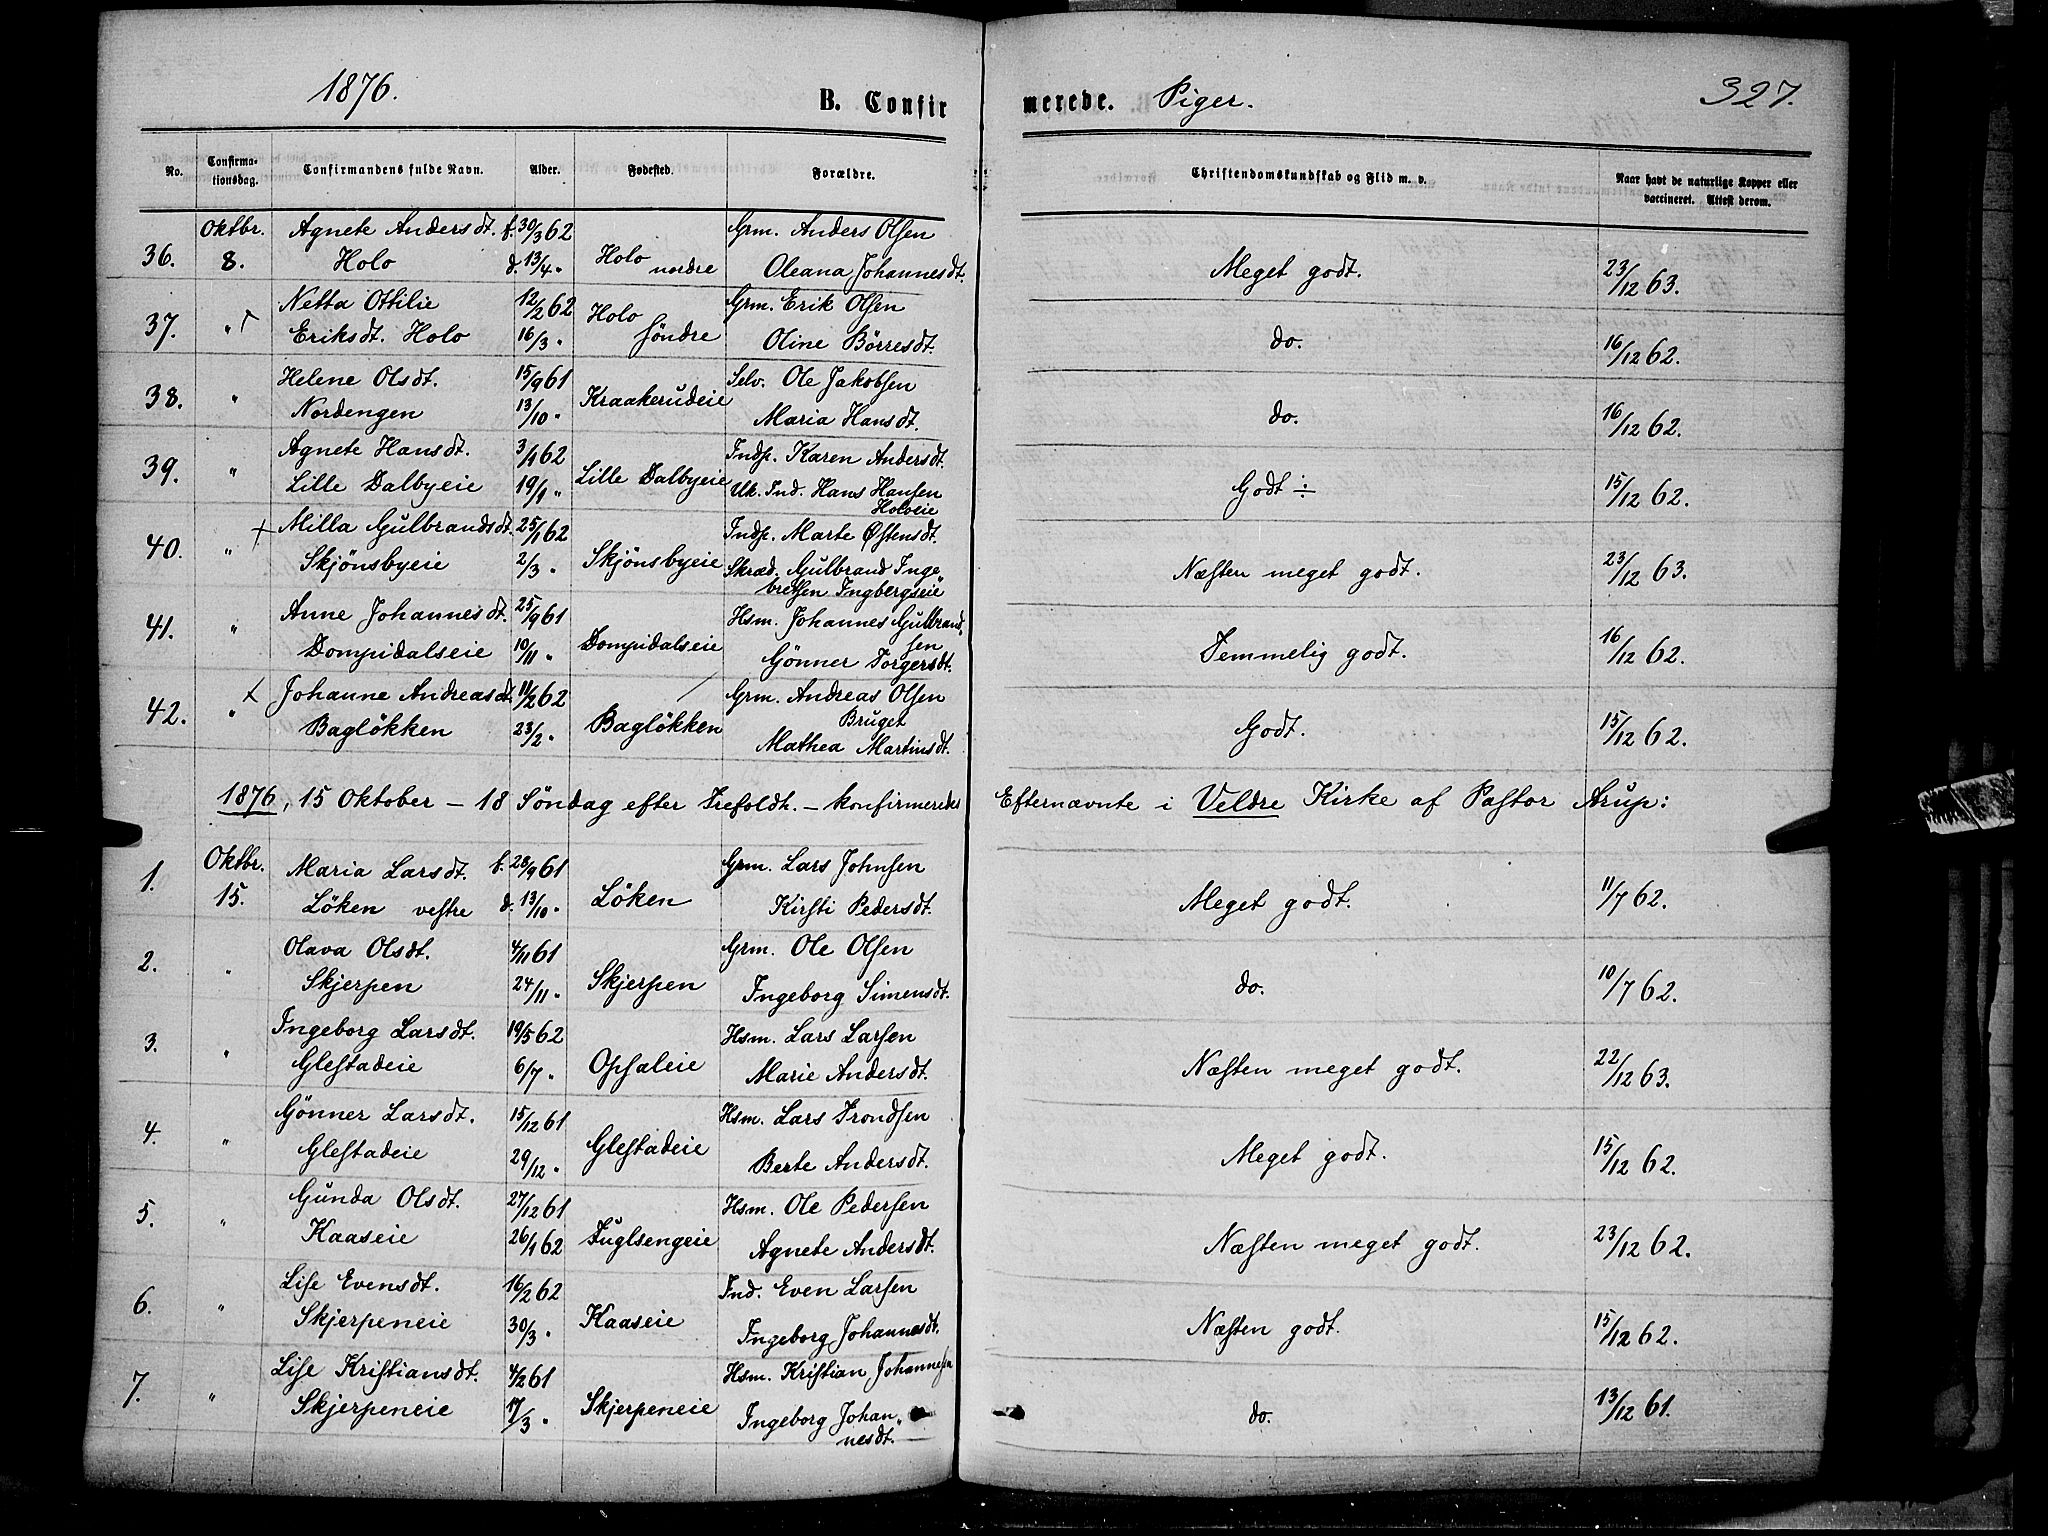 1876.
B. Confirmerede. Piger.
327.
No. Confirma-tionsdag. Confirmandens fulde Navn. Alder. Fødested. Forældre. Christendomskundskab og Flid m. v. Naar havt de naturlige Kopper eller vaccineret. Attest derom.
Oktbr. Agnete Andersdt. f. 30/3 62 Grm. Anders Olsen
36. 8. Holo d. 13/4 " Holo nordre Oleana Johannesdt. Meget godt. 23/12 63.
Netta Otilie 12/2 62 Holo Grm. Erik Olsen
37. " Eriksdt. Holo 16/3 " søndre Oline Börresdt. do. 16/12 62.
Helene Olsdt. 15/9 61 Selv. Ole Jakobsen
38. " Nordengen 13/10 " Kraakerudeie Maria Hansdt. do. 16/12 62.
Agnete Hansdt. 3/1 62 Indp. Karen Andersdt.
39. " Lille Dalbyeie 19/1 " Lille Dalbyeie Uk. Ind. Hans Hansen Godt ÷ 15/12 62.
Holveie
Milla Gulbrandsdt. 25/1 62 Indp. Marte Østensdt.
40. " Skjönsbyeie 2/3 " Skjönsbyeie Skræd. Gulbrand Inge Næsten meget godt. 23/12 63.
bretsen Ingbergseie
Anne Johannesdt. 25/9 61 Hsm. Johannes Gulbrand-
41. " Dompidalseie 10/11 " Dompidalseie sen Temmelig godt. 16/12 62.
Gönner Torgersdt.
Johanne Andreasdt. 11/2 62 Grm. Andreas Olsen
42. " Baglökken 23/2 " Baglökken Bruget Godt. 15/12 62.
Mathea Martinsdt.
1876, 15 Oktober – 18 Söndag efter Trefoldh. – konfirmeredes Efternævnte i Veldre Kirke af Pastor Arup:
Oktbr. Maria Larsdt. f. 28/9 61 Grm. Lars Johnsen
1. 15. Löken vestre d. 13/10 " Löken Kirsti Pedersdt. Meget godt. 11/7 62.
Olava Olsdt. 4/11 61 Grm. Ole Olsen
2. " Skjerpen 24/11 " Skjerpen Ingeborg Simensdt. do. 10/7 62.
Ingeborg Larsdt. 19/5 62 Hsm. Lars Larsen
3. " Glestadeie 6/7 " Opsaleie Marie Andersdt. Næsten meget godt. 22/12 63.
Gönner Larsdt. 15/12 61 Hsm. Lars Trondsen
4. " Glestadeie 29/12 " Glestadeie Berte Andersdt. Meget godt. 15/12 62.
Gunda Olsdt. 27/12 61 Hsm. Ole Pedersen
5. " Kaaseie 26/1 62 Fuglsengeie Agnete Andersdt. Næsten meget godt. 23/12 62.
Lise Evensdt. 16/2 62 Ind. Even Larsen
6. " Skjerpeneie 30/3 " Kaaseie Ingeborg Johannesdt. Næsten godt. 15/12 62.
Lise Kristiansdt. 4/2 61 Hsm. Kristian Johannesen
7. " Skjerpeneie 17/3 " Skjerpeneie Ingeborg Johan- do. 13/12 61.
nesdt.